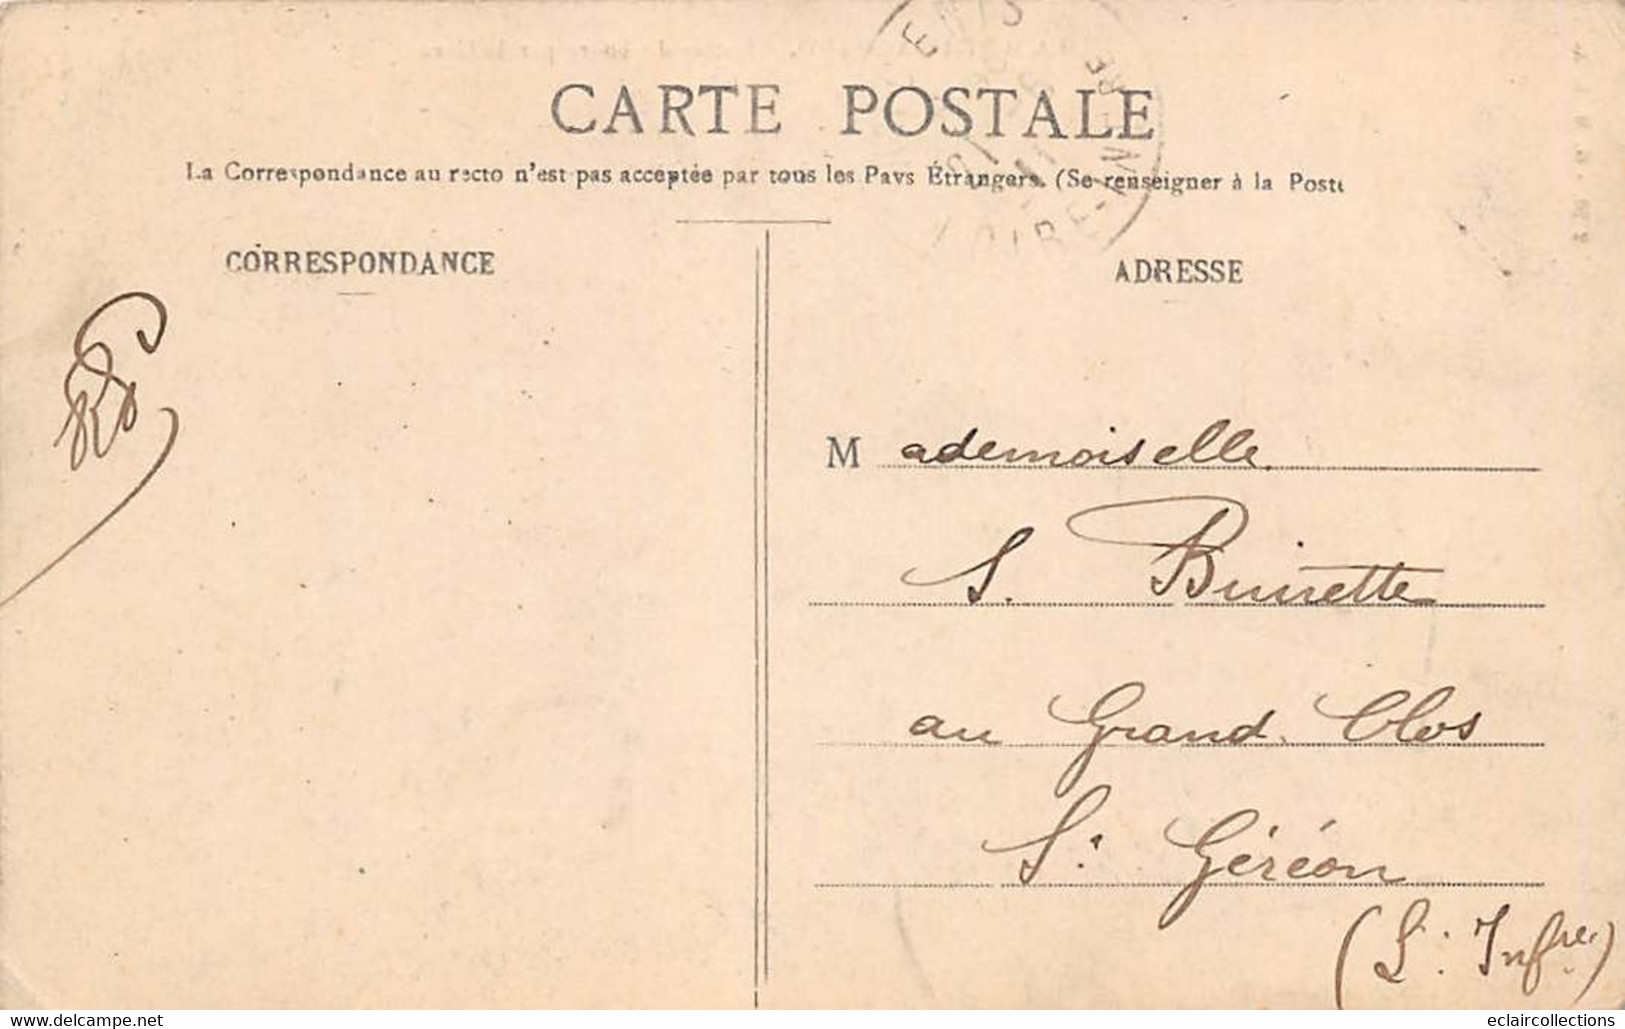 CARTE POSTALE
La Correspondance au recto n'est pas acceptée par tous les Pays Étrangers. (Se renseigner à la Poste
CORRESPONDANCE
ADRESSE
Mademoiselle
S.
au Grand Clos
St Géréon
(L. Infre)
ENIS
LOIRE-IN RE
www.delcampe.net
eclaircollections